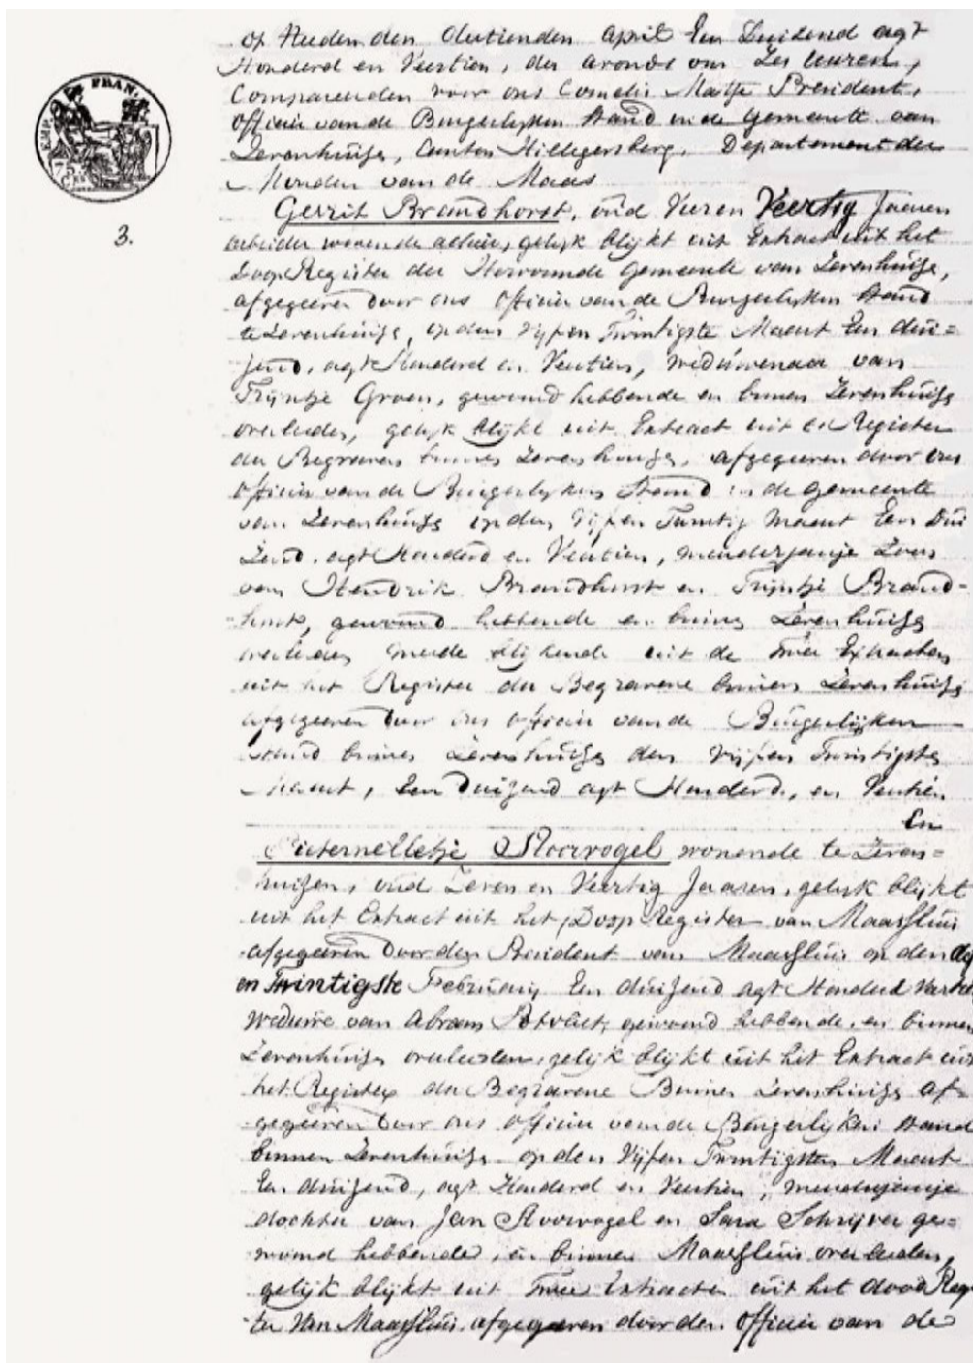 EMP. FRAN.
75
3.
op Heden den dertienden April Een Duizend agt
Honderd en Veertien, des avonds om Zes Uuren,
Compareerden voor ons Cornelis Matse President,
Officier van de Burgerlyken Stand in de Gemeente van
Zevenhuize, Canton Hillegersberg, Departement der
Monden van de Maas
Gerrit Brandhorst, oud Vieren Veertig Jaaren
arbeider wonende alhier, gelyk blykt uit Extract uit het
Doop Register der Hervormde Gemeente van Zevenhuize,
afgegeeven door ons Officier van de Burgerlyken Stand
te Zevenhuize, op den Vyf en Twintigste Maart Een dui=
zend, agt Honderd en Veertien, Weduwenaar van
Tryntje Groen, gewoond hebbende en binnen Zevenhuize
overleden, gelyk blykt uit Extract uit het Register
der Begraven binnen Zevenhuize, afgegeeven door ons
Officier van de Burgerlyken Stand in de Gemeente
van Zevenhuize op den Vyf en Twintig Maart Een Dui
Zend agt Honderd en Veertien, meerderjarige Zoon
van Hendrik Brandhorst en Tryntje Brand-
horst, gewoond hebbende en binnen Zevenhuize
overleden mede blykende uit de Twee Extracten
uit het Register der Begravene binnen Zevenhuize
afgegeeven door ons Officier van de Burgerlijken
Stand binnen Zevenhuize den Vijf en Twintigste
Maart, Een Duizend agt Honderd, en Veertien
En
Pieternelletje Stoorvogel wonende te Zeven=
huizen, oud Zeven en Veertig Jaaren, gelyk blykt
uit het Extract uit het Doop Register van Maassluis
afgegeeven door den President van Maassluis op den
en Twintigste February Een duizend agt Honderd
Weduwe van Abram gewoond hebbende, en binnen
Zevenhuize overleden, gelijk blijkt uit het Extract uit
het Register der Begravene Binnen Zevenhuize af=
gegeeven door ons Officier van de Burgerlijken Stand
binnen Zevenhuize op den Vijf en Twintigsten Maart
Een duizend, agt Honderd en Veertien, meerderjarige
dochter van Jan Stoorvogel en Sara Schrijver ge=
woond hebbende, en binnen Maassluis overleeden,
gelijk blijkt uit Twee Extracten uit het dood Regis
ter van Maassluis afgegeeven door den Officier van de